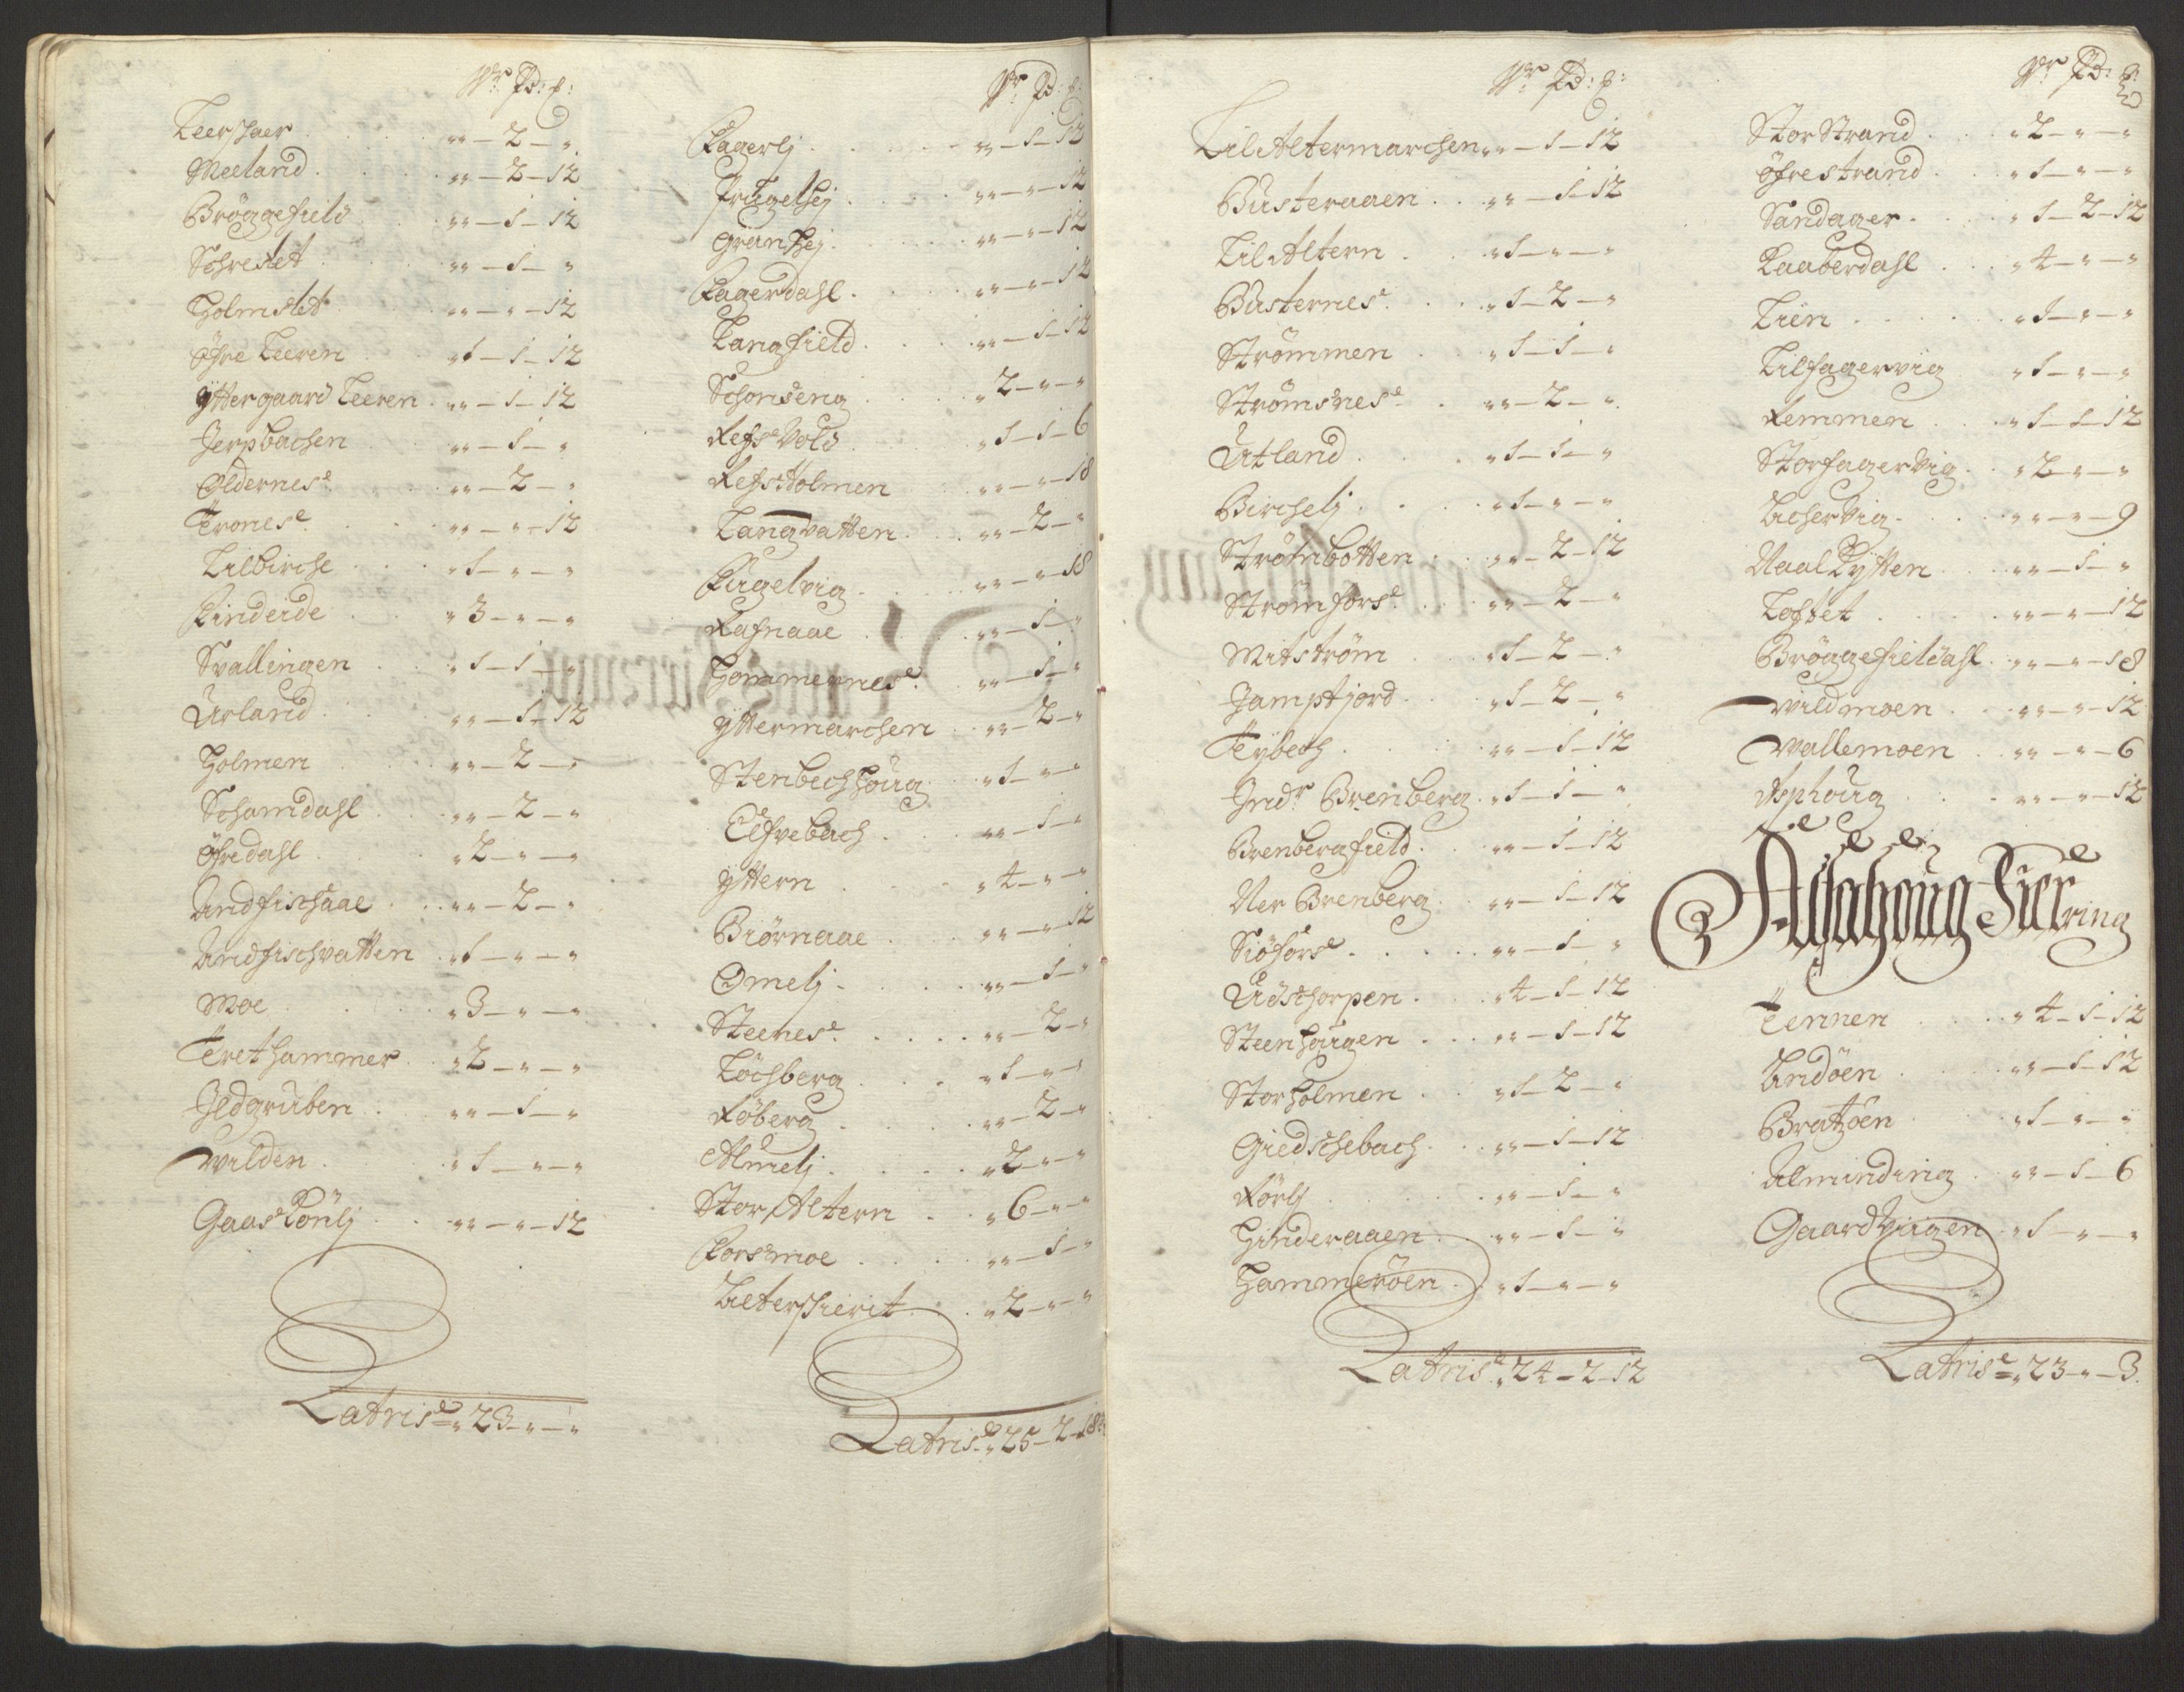 Wr Pd: s:
Leerschaer . . . „„ – 2 – „
Meeland . . . „„ – 2 – 12
Brøggefield „„ – 1 – 12
Schreslet . „„ – 1 – „
Holmslet . „„ – „ – 12
Øfre Leeren . „1 – 1 – 12
Yttergaard Leeren . „„ – 1 – 12
Jerpbachen . „„ – 1 – „
Oldernese . „„ – 2 – „
Tronese . . . „„ – „ – 12
Lilbirche . . . „1 – „ – „
Finderde . . „3 – „ – „
Svallingen . . „1 – 1 – „
Urland . . . „„ – 1 – 12
Holmen . . „„ – 2 – „
Schamdahl . . „„ – 2 – „
Øfredahl . . . „2 – „ – „
Andfischaae . . „„ – 2 – „
Andfischvatten . „1 – „ – „
Moe . . . „3 – „ – „
Trethammer . „2 – „ – „
Jldgruben . . „„ – 1 – „
Wilden . . . „1 – „ – „
Gaas Rönlj . . „„ – „ – 12
Latrise „23 – „ – „
Wr Pd: s:
Fagerlj . . . „„ – 1 – 12
Frugelhej . . . „„ – „ – 12
Granhej . . . „„ – „ – 12
Fagerdahl . . . „„ – „ – 12
Langfield . . . „„ – 1 – 12
Schonseng . . „2 – „ – „
Refse Vold . . „1 – 1 – 6
Refs Holmen . „„ – „ – 18
Langvatten . . „„ – 2 – „
Fugelvig . . . „„ – „ – 18
Rafnaae . . . „„ – 1 – „
Hommernese . „„ – 1 – „
Yttermarchen . „„ – 2 – „
Stenbechhoug . „1 – „ – „
Elfvebach . . . „„ – 1 – „
Yttern . . . „4 – „ – „
Biørnaae . . . „„ – „ – 12
Omelj . . . „„ – 1 – „
Steenese . . . „„ – 2 – „
Löchberg . . . „1 – „ – „
Röberg . . . „„ – 2 – „
Almelj . . . „2 – „ – „
Stor Altern . . „6 – „ – „
Forsmoe . . . „„ – 1 – „
. . „2 – „ – „
Latrise „25 – 2 – 18
Wr Pd: s:
Lil Altermarchen „„ – 1 – 12
Busteraaen . . „„ – 1 – 12
Lil Altern . . „1 – „ – „
Busternese . . „1 – 2 – „
Strömmen . . „1 – 1 – „
Strømsnese . . „„ – 2 – „
Utland . . . „1 – 1 – „
Birchelj . . . „1 – „ – „
Strømbotten . . „„ – 2 – 12
Strømforse . . „„ – 2 – „
Mitström . . „1 – 2 – „
Jampfjord . . „1 – 2 – „
Teybech . . . „„ – 1 – 12
Jndr Brenberg . „1 – 1 – „
Brenbergfield . „„ – 1 – 12
Ner Brenberg . „„ – 1 – 12
Siöforse . . . „„ – 1 – „
Udschorpen . . „4 – 1 – 12
Steenhaugen . . „„ – 1 – 12
Storholmen . . „1 – 2 – „
Giedschebach . . „„ – 1 – 12
Rörlj . . . „„ – 1 – „
Hinderaaen . . „„ – 1 – „
Hammeröen . „1 – „ – „
Latrise „24 – 2 – 12
Wr Pd: s:
Stor Strand . . „2 – „ – „
Øfrestrand . . „1 – „ – „
Sandager . . . „1 – 2 – 12
Raaberdahl . . „4 – „ – „
Lien . . . „1 – „ – „
Lilfagervig . . „1 – „ – „
Remmen . . . „1 – 1 – 12
Storfagervig . . „2 – „ – „
Achervig . . . „„ – „ – 9
Naal Rytten . . „„ – 1 – „
Loftet . . . „„ – „ – 12
Brøggefieldahl . „„ – „ – 18
Wildmoen . . „„ – „ – 12
Wallemoen . . „„ – „ – 6
Asphoug . . . „„ – „ – 12
Alsahoug Fierring
Tennen . . . „4 – 1 – 12
Andöen . . . „„ – 1 – 12
Bratöen . . . „1 – „ – „
Alminding . . „„ – 1 – 6
Gaardviigen . „1 – „ – „
Latrise „23 – „ – 3